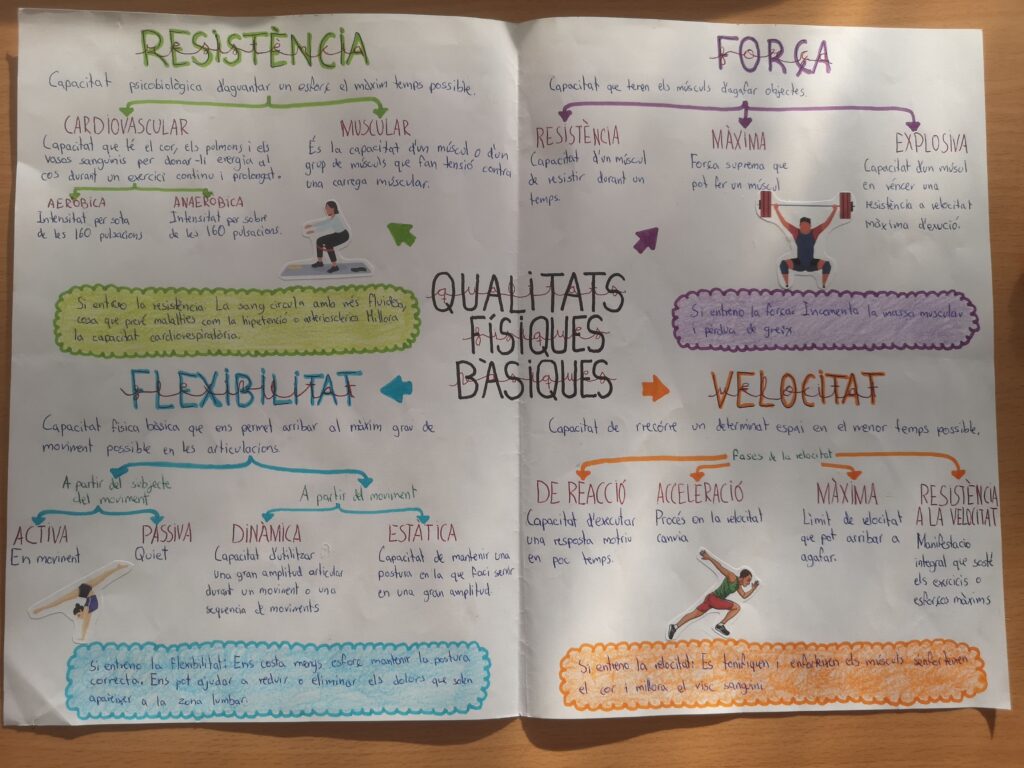 RESISTÈNCIA
Capacitat psicobiològica d'aguantar un esforç el màxim temps possible.
CARDIOVASCULAR
Capacitat que té el cor, els pulmons i els
vasos sanguinis per donar-li energia al
cos durant un exercici continu i prolongat.
AERÒBICA
Intensitat per sota
de les 160 pulsacions
ANAERÒBICA
Intensitat per sobre
de les 160 pulsacions.
MUSCULAR
És la capacitat d'un múscul o d'un
grup de músculs que fan tensió contra
una carrega múscular.
Si entreno la resistència: La sang circula amb més fluidesa,
cosa que prevé malalties com la o Millora
la capacitat cardiorespiratòria.
FORÇA
Capacitat que tenen els músculs d'agafar objectes.
RESISTÈNCIA
Capacitat d'un múscul
de resistir durant un
temps.
MÀXIMA
Força suprema que
pot fer un múscul
EXPLOSIVA
Capacitat d'un músul
en véncer una
resistència a velocitat
màxima d'exució.
Si entreno la força: la massa muscular
i pèrdua de greix.
QUALITATS
FÍSIQUES
BÀSIQUES
FLEXIBILITAT
Capacitat física bàsica que ens permet arribar al màxim grau de
moviment possible en les articulacions.
A partir del subjecte
del moviment
ACTIVA
En moviment
PASSIVA
Quiet
A partir del moviment
DINÀMICA
Capacitat d'utilitzar
una gran amplitud articular
durant un moviment o una
sequencia de moviments
ESTÀTICA
Capacitat de mantenir una
postura en la que faci servir
en una gran amplitud
Si entreno la flexibilitat: Ens costa menys esforç mantenir la postura
correcta. Ens pot ajudar a reduir o eliminar els dolors que solen
apareixer a la zona lumbar.
VELOCITAT
Capacitat de un determinat espai en el menor temps possible.
Fases de la velocitat
DE REACCIÓ
Capacitat d'executar
una resposta motriu
en poc temps.
ACCELERACIÓ
Procés on la velocitat
canvia
MÀXIMA
Limit de velocitat
que pot arribar a
agafar.
RESISTÈNCIA
A LA VELOCITAT
Manifestació
integral que sosté
els exercicis o
esforços màxims
Si entreno la velocitat: Es tonifiquen i enforteixen els músculs
el cor i millora el sanguini